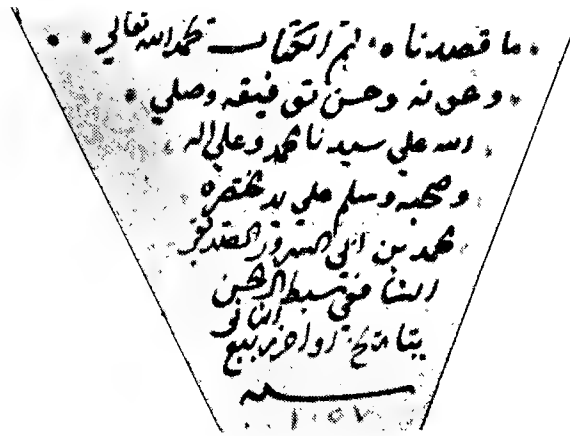 ما قصدناه تم الكتاب بحمد الله تعالى
وعونه وحسن توفيقه وصلى
الله على سيدنا محمد وعلى اله
وصحبه وسلم على يد مختصره
محمد بن ابي السرور الصديقي
الشافعي سبط ال الحسن
بتاريخ اواخر ربيع الثاني
سنة
١٠٥٧